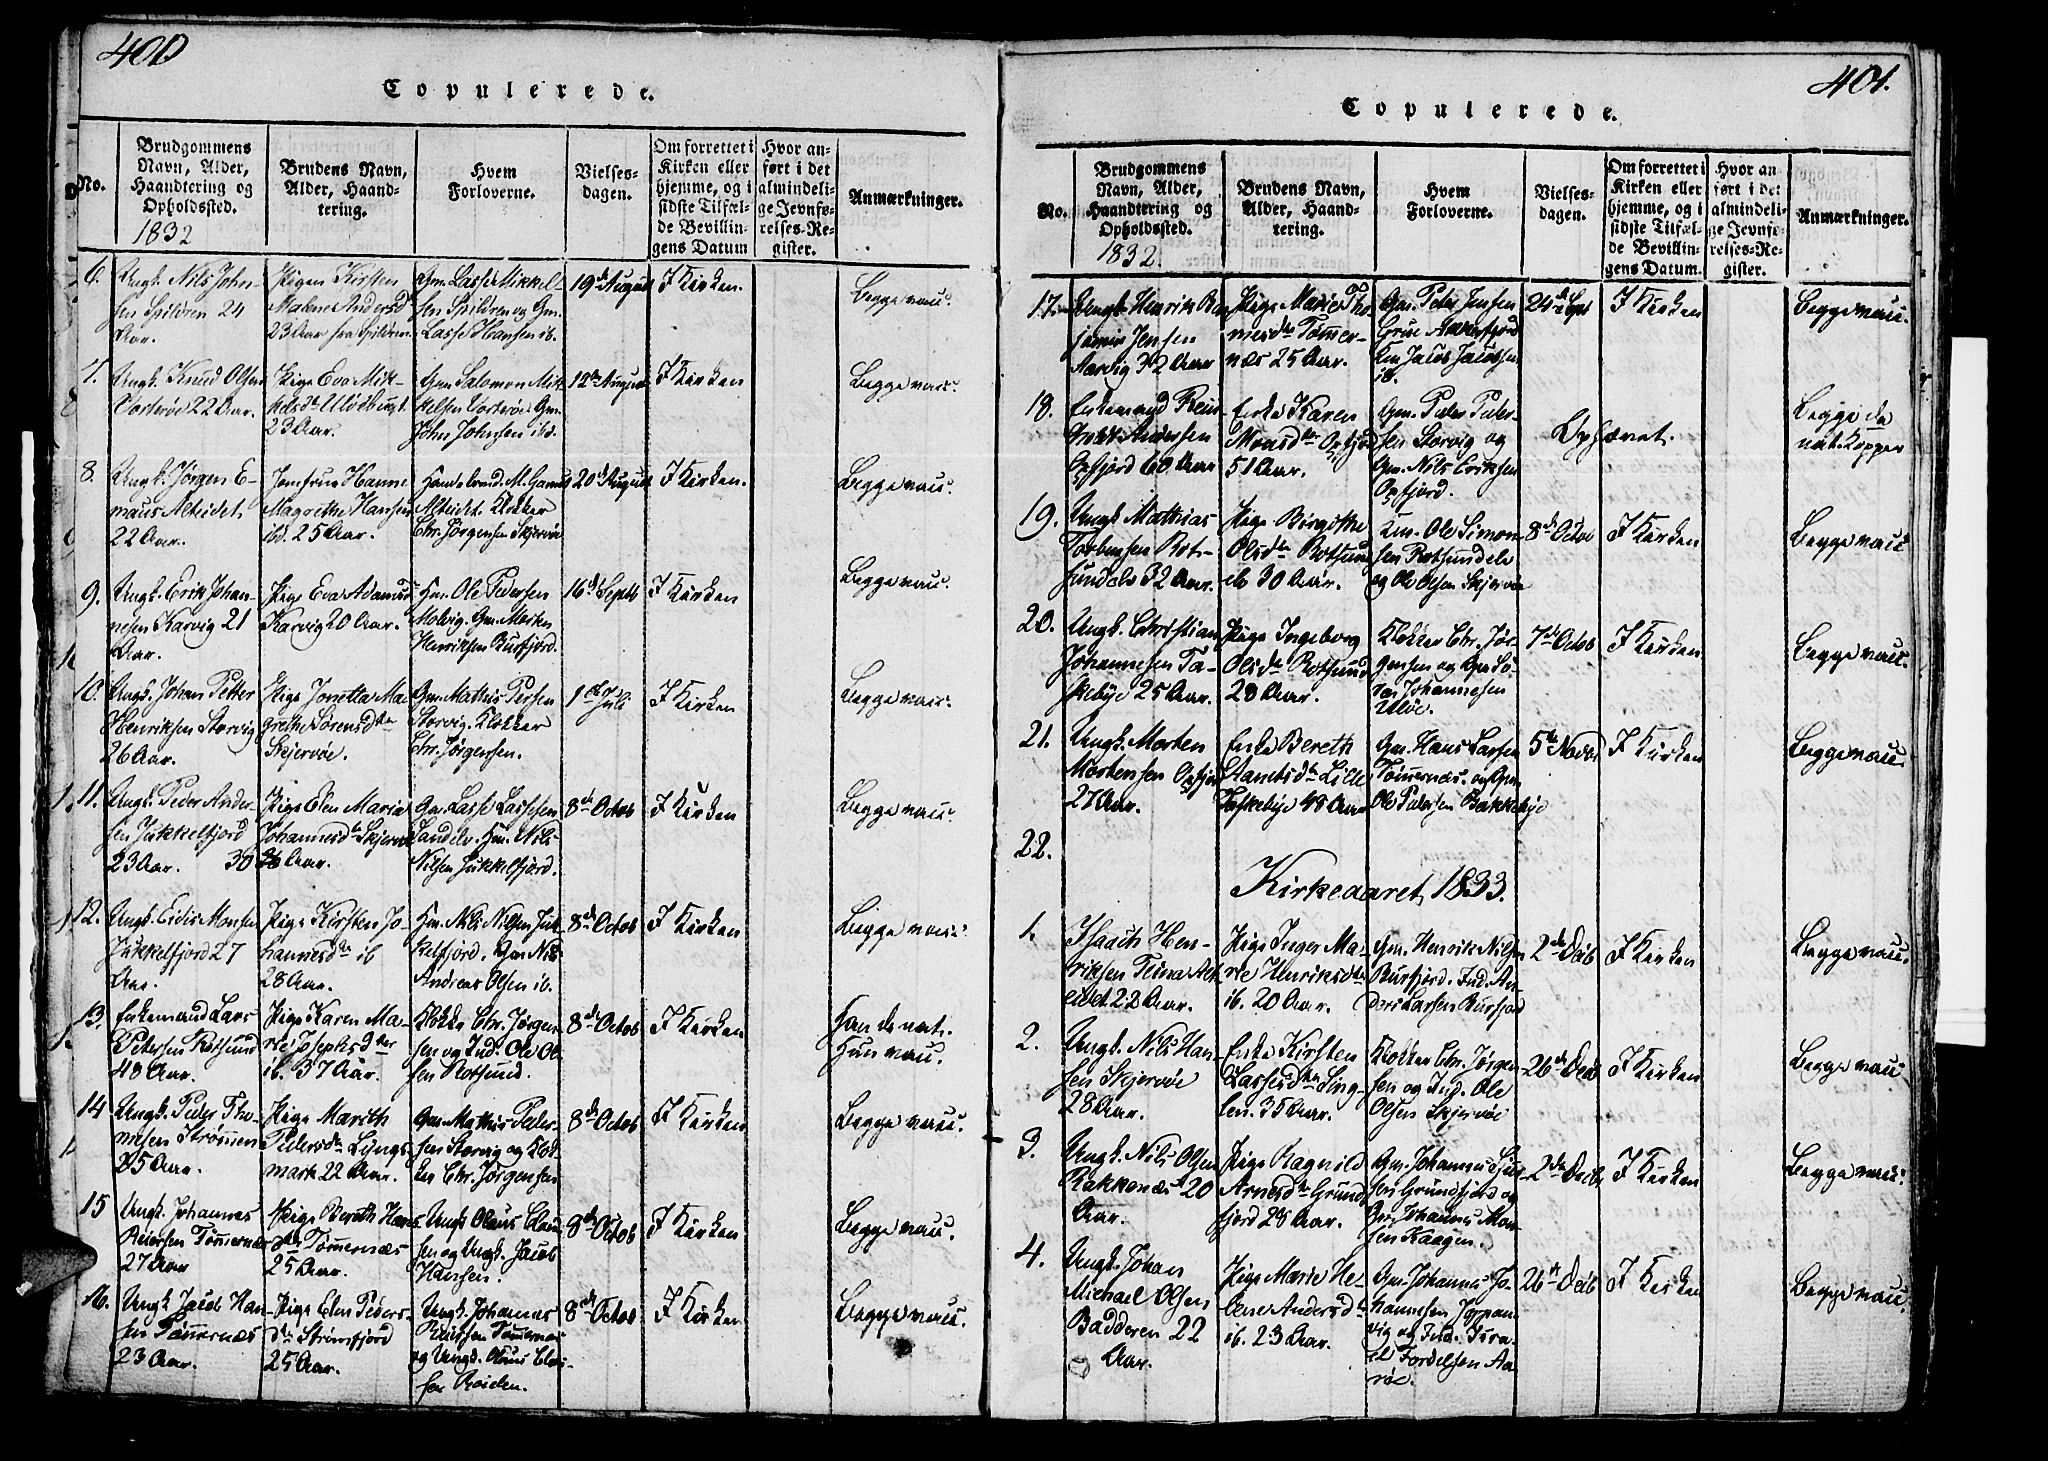 400
Copulerede.
No.
Brudgommens
Navn, Alder,
Haandtering og
Opholdssted.
1832
Brudens Navn,
Alder, Haand-
tering.
Hvem
Forloverne.
Vielses-
dagen.
Om forrettet i
Kirken eller
hjemme, og i
sidste Tilfæl-
de Bevillin-
gens Datum
Hvor an-
ført i det
almindeli-
ge Jevnfø-
relses-Re-
gister.
Anmærkninger.
6.
Ungk. Nils John-
sen Spildren 24
Aar.
Pigen Kirsten
Malene Andersd
23 Aar fra Spildren
Gm. Lasse Mikkel-
sen Spildren og Gm.
Lasse Hansen ib.
19de August
I Kirken.
Begge vac.
7.
Ungk. Knud Olsen
Vorterøe 22 Aar.
Pige Eva Mik-
kelsdr Uløebugt
23 Aar.
Gm Salomon Mik-
kelsen Vorterøe Gm.
John Johnsen ibd.
12te August
I Kirken
Begge vac.
8.
Ungk. Jørgen E-
maus Alteidet,
22 Aar.
Jomfrue Hanne
Magrethe Hansen
ibd. 25 Aar.
Handelsmd. M. Gamst
Alteidet Klokker
Chr. Jørgensen Skjervøe
20de August
I Kirken.
Begge vac.
9.
Ungk. Erik Johan-
nesen Karvig 21
Aar.
Pige Eva Adamsd
Karvig 20 Aar.
Gm. Ole Pedersen
Molvig. Gm. Morten
Henriksen Burfjord.
16de Septb
I Kirken
Begge vac.
10.
Ungk. Johan Petter
Henriksen Storvig
26 Aar.
Pige Jonetta Ma-
grethe Sørensdtter
Skjervøe.
Gm Mathis Persen
Storvig. Klokker
Chr. Jørgensen.
1ste Juli
I Kirken
Begge vac.
11.
Ungk. Peder Ander-
sen Jukkelfjord
23 Aar.
Pige Elen Maria
Johannesdr Skjervøe
30 Aar.
Gm. Lasse Lassesen
Sandelv. Gm. Nils
Nilsen Jukkelfjord.
8de Octob
I Kirken
Begge vac.
12.
Ungk. Eidis Monsen
Jukkelfjord 27
Aar.
Pige Kirsten Jo-
hannesdtr ib
28 Aar.
Gm. Nils Nilsen Juk-
kelfjord. Gm Nils
Andreas Olsen ib.
8de Octob
I Kirken
Begge vac.
13.
Enkemand Lars
Petersen Rotsund
48 Aar.
Pige Karen Ma-
rie Josephsdtter
ib. 37 Aar.
Klokker Chr. Jørgen-
sen og Ind. Ole Ol-
sen Rotsund.
8de Octob
I Kirken
Han de nat.
Hun vac.
14
Ungk. Peder Tho-
mesen Strømmen
25 Aar.
Pige Marith
Pedersdr Lyngs-
mark 22 Aar.
Gm. Mathis Peder-
sen Storvig og Klok-
ker Chr. Jørgensen
8de Octob
I Kirken
Begge vac.
15
Ungk. Johannes
Reiersen Tømmernæs
27 Aar
Pige Berith Hans-
dr Tømmernæs
25 Aar.
Ungk Olaus Claus-
sen og Ungk. Jacob
Hansen.
8de Octob
I Kirken
Begge vac.
16.
Ungk Jacob Han-
sen Tømmernæs
23 Aar.
Pige Elen Peders-
dr Strømfjord
25 Aar.
Ungk. Johannes
Reiersen Tømmernæs
og Ungk. Olaus Claus-
sen
8de Octob
I Kirken
Begge vac.
401.
Copulerede.
No.
Brudgommens
Navn, Alder,
Haandtering og
Opholdssted.
1832.
Brudens Navn,
Alder, Haand-
tering.
Hvem
Forloverne.
Vielses-
dagen.
Om forrettet i
Kirken eller
hjemme, og i
sidste Tilfæl-
de Bevillin-
gens Datum.
Hvor an
ført i det
almindeli-
ge Jevnfø-
relses-Re-
gister.
Anmærkninger.
17.
Ungk Henrik Ben-
jamin Jensen
Aarvig 32 Aar
Pige Marie Tho-
mesdtr Tømmer-
næs 25 Aar.
Gm. Peter Jensen
Jacob Jacobsen
ib.
24de Sept
I Kirken
Begge vac.
18.
Enkemand Rein-
holdt Andersen
Oxfjord 60 Aar
Enke Karen
Monsdtr Oxfjord
51 Aar.
Gm. Peder Peder-
sen Storvig og
Gm. Nils Eriksen
Oxfjord.
Ophævet.
Begge de
nat. Kopper
19.
Ungk Mathias
Torbensen Rot-
sundelv 32 Aar.
Pige Birgithe
Olsdtr Rotsund-
elv 30 Aar.
Ole Simon-
sen Rotsundelv
og Ole Olsen Skjervøe
8de Octob
I Kirken
Begge vac
20.
Ungk. Christian
Johannesen Ta-
skebye 25 Aar.
Pige Ingeborg
Olsdtr Rotsund
28 Aar.
Klokker Chr. Jør-
gensen og
Johannesen
Uløe.
7de Octob
I Kirken
Begge vac.
21.
Ungk. Morten
Mortensen Oxfjord
27 Aar.
Enke Bereth
Lille
Taskebye 48 Aar
Gm. Hans Larsen
Tømmernæs. og Gm
Ole Pedersen Bakkebye
5te Novbr
I Kirken
Begge vac.
22.
Kirkeaaret 1833.
1.
Isach Hen-
riksen Alt-
eidet 22 Aar.
Pige Inger Ma-
rie Henriksdtr
ib. 20 Aar.
Gm. Henrik Nilsen
Burfjord. Ind. An-
ders Larsen Burfjord
2de Decb
I Kirken
Begge vac.
2.
Ungk. Nils Han-
sen Skjervøe
28 Aar.
Enke Kirsten
Lassesdtr Ling-
len. 35 Aar.
Klokker Chr. Jørgen-
sen og Ind. Ole
Olsen Skjervøe
26de Decb
I Kirken
Begge vac
3.
Ungk. Nils Olsen
Rakkenæs 20
Aar.
Pige Ragnild
Arnesdtr Grund-
fjord 28 Aar.
Gm. Johannes
sen Grundfjord og
Gm. Johannes Mon-
sen Kaagen.
2de Decb
I Kirken
Begge vac.
4.
Ungk. Johan
Michael Olsen
Badderen 22
Aar.
Pige Marie He-
lene Andersdtr
ib. 23 Aar.
Gm. Johannes Jo-
hannesen
vig og Ind. Isra-
el Fordelsen Aa-
røe.
26de Decb
I Kirken
Begge vac.